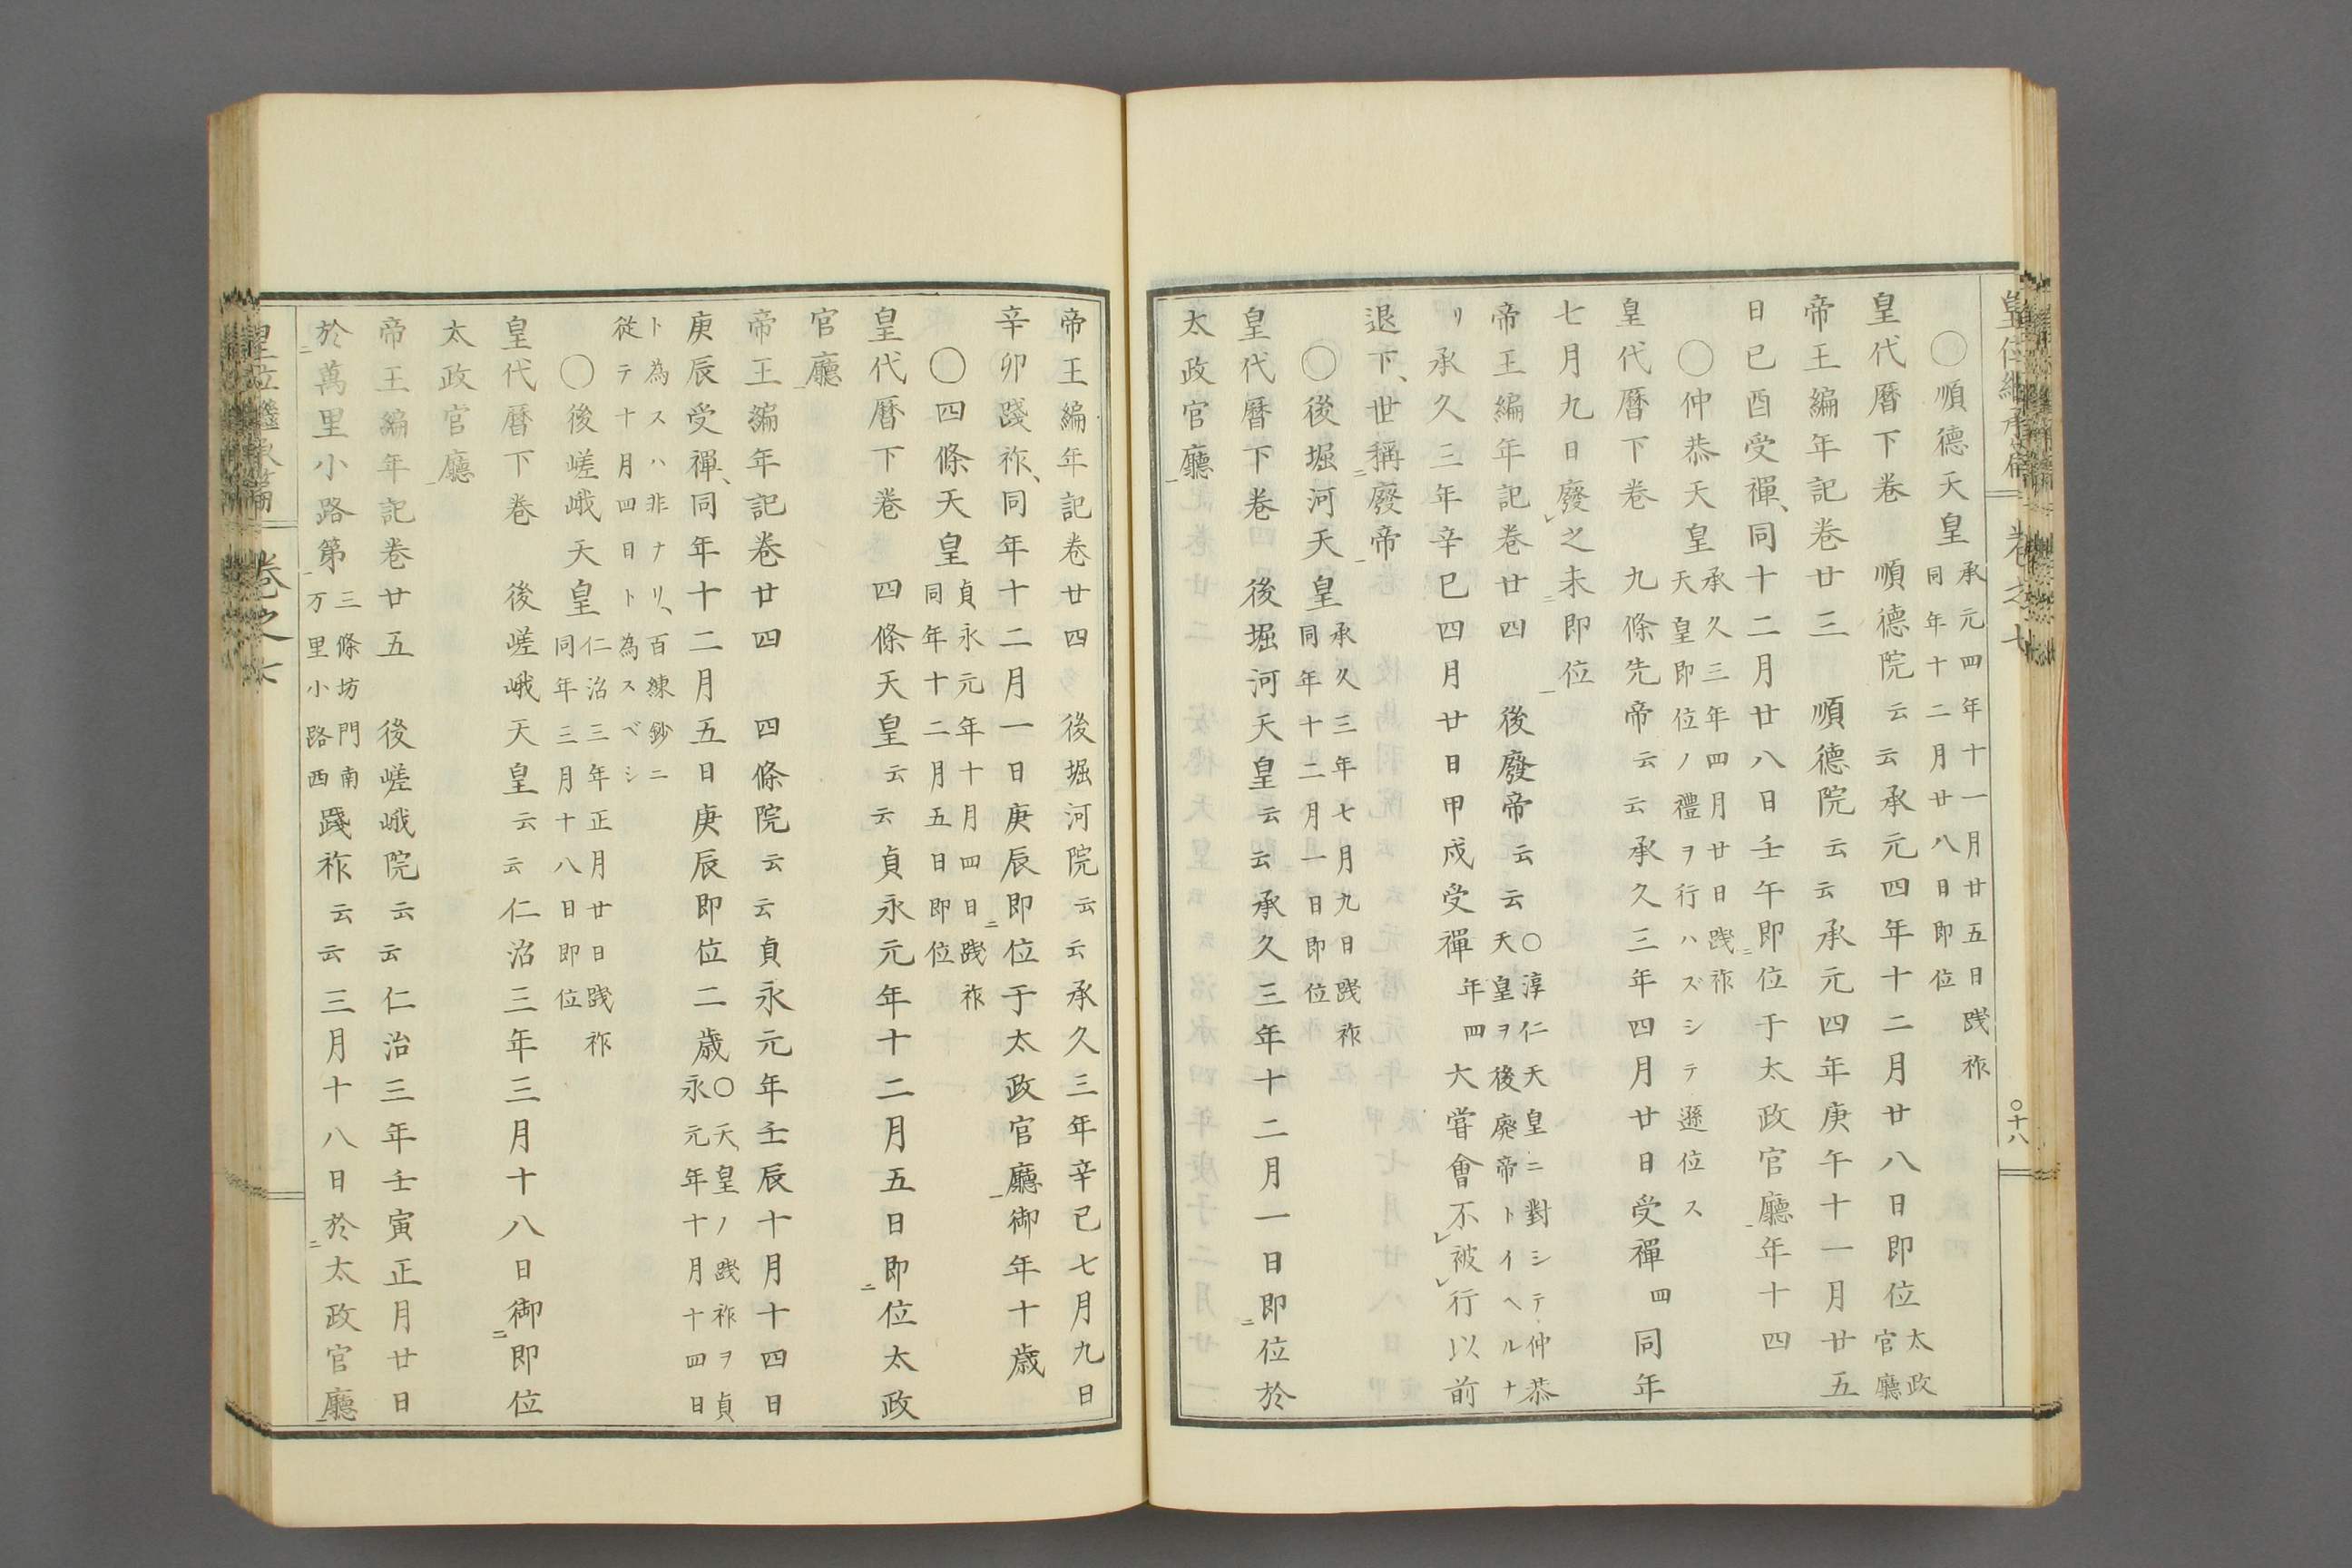 皇位繼承篇 卷之七 〇十八
〇順德天皇 承元四年十一月廿五日踐祚 同年十二月廿八日即位
皇代曆下卷 順德院云云承元四年十二月廿八日即位 太政官廳
帝王編年記卷廿三 順德院云云承元四年庚午十一月廿五
日己酉受禪、同十二月廿八日壬午即位于太政官廳年十四
〇仲恭天皇 承久三年四月廿日踐祚 天皇即位ノ禮ヲ行ハズシテ遜位ス
皇代曆下卷 九條先帝云云承久三年四月廿日受禪四同年
七月九日廢之未即位
帝王編年記卷廿四 後廢帝云云 〇淳仁天皇ニ對シテ仲恭天皇ヲ後廢帝トイヘルナ
リ 承久三年辛巳四月廿日甲戌受禪年四大甞會不被行以前
退下、世稱廢帝
〇後堀河天皇 承久三年七月九日踐祚 同年十二月一日即位
皇代曆下卷 後堀河天皇云云承久三年十二月一日即位於
太政官廳
帝王編年記卷廿四 後堀河院云云承久三年辛巳七月九日
辛卯踐祚、同年十二月一日庚辰即位于太政官廳御年十歲
〇四條天皇 貞永元年十月四日踐祚 同年十二月五日即位
皇代曆下卷 四條天皇云云貞永元年十二月五日即位太政
官廳
帝王編年記卷廿四 四條院云云貞永元年壬辰十月十四日
庚辰受禪、同年十二月五日庚辰即位二歲 〇天皇ノ踐祚ヲ貞永元年十月十四日
ト為スハ非ナリ、百練鈔ニ從テ十月四日ト為スベシ
〇後嵯峨天皇 仁治三年正月廿日踐祚 同年三月十八日即位
皇代曆下卷 後嵯峨天皇云云仁治三年三月十八日御即位
太政官廳
帝王編年記卷廿五 後嵯峨院云云仁治三年壬寅正月廿日
於萬里小路第 三條坊門南万里小路西 踐祚云云三月十八日於太政官廳
皇位繼承篇 卷之七